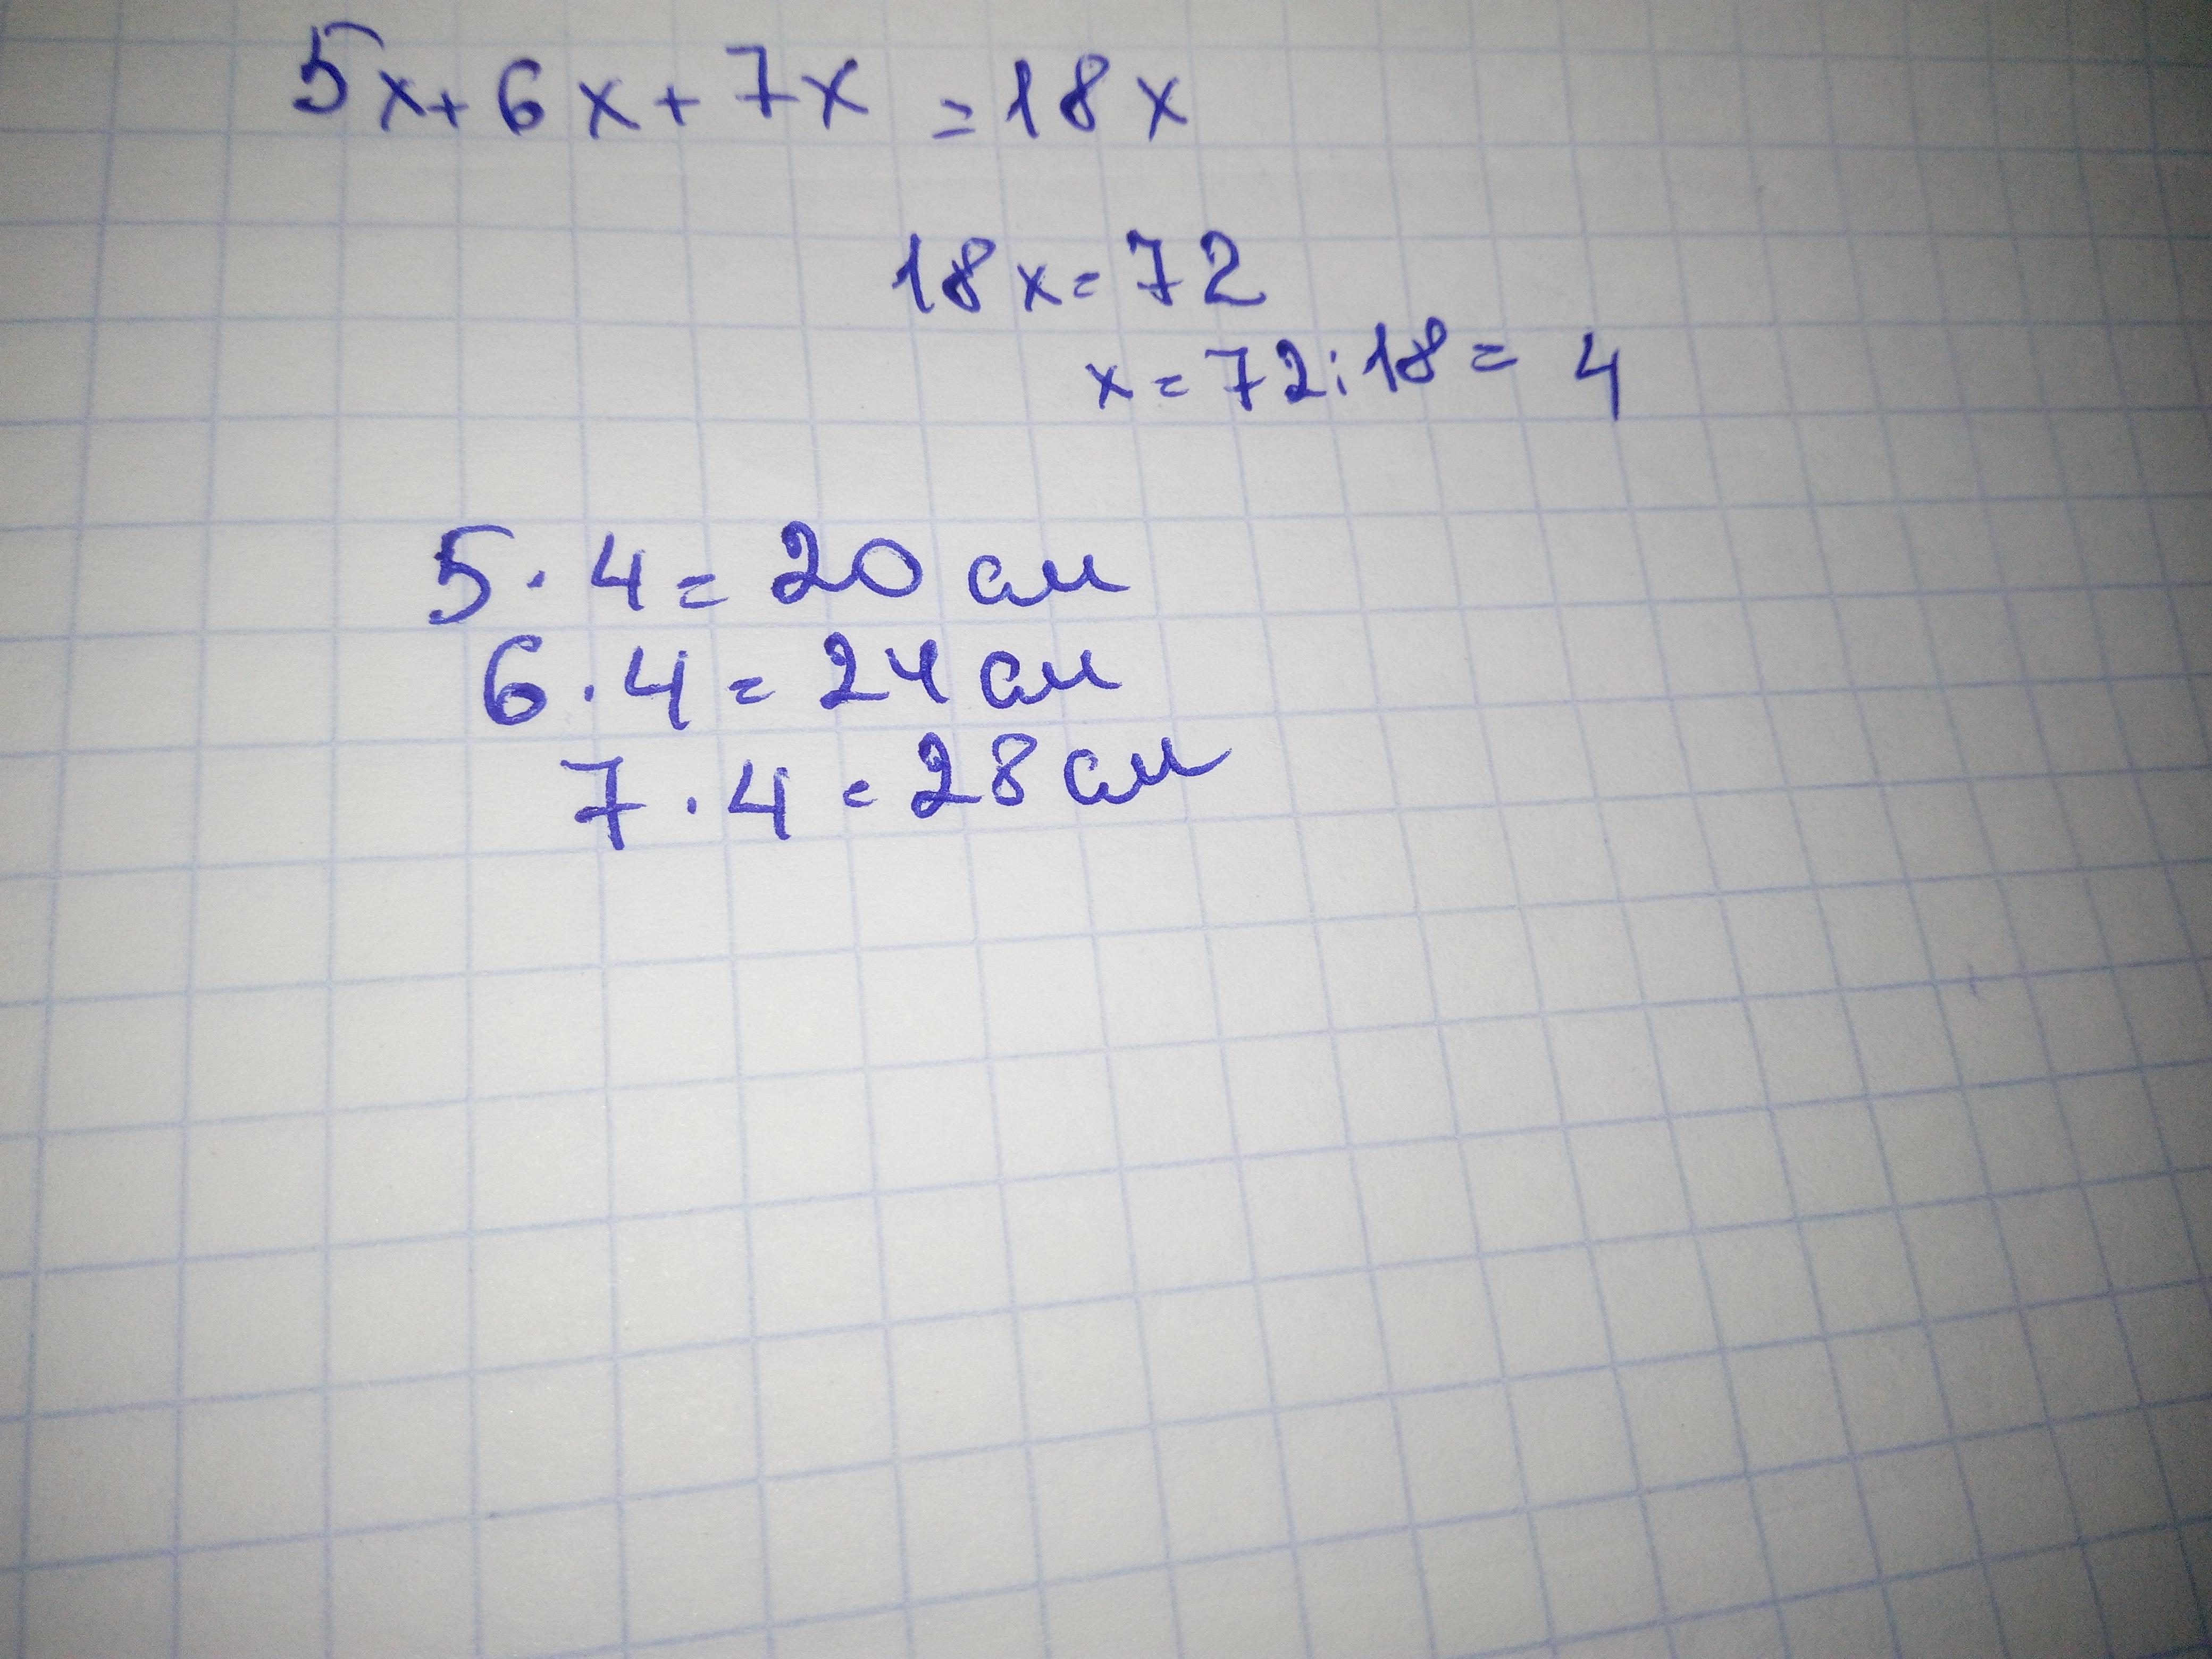 5x+6x+7x=18x
18x=72
x=72:18=4
5·4=20см
6·4=24см
7·4=28см